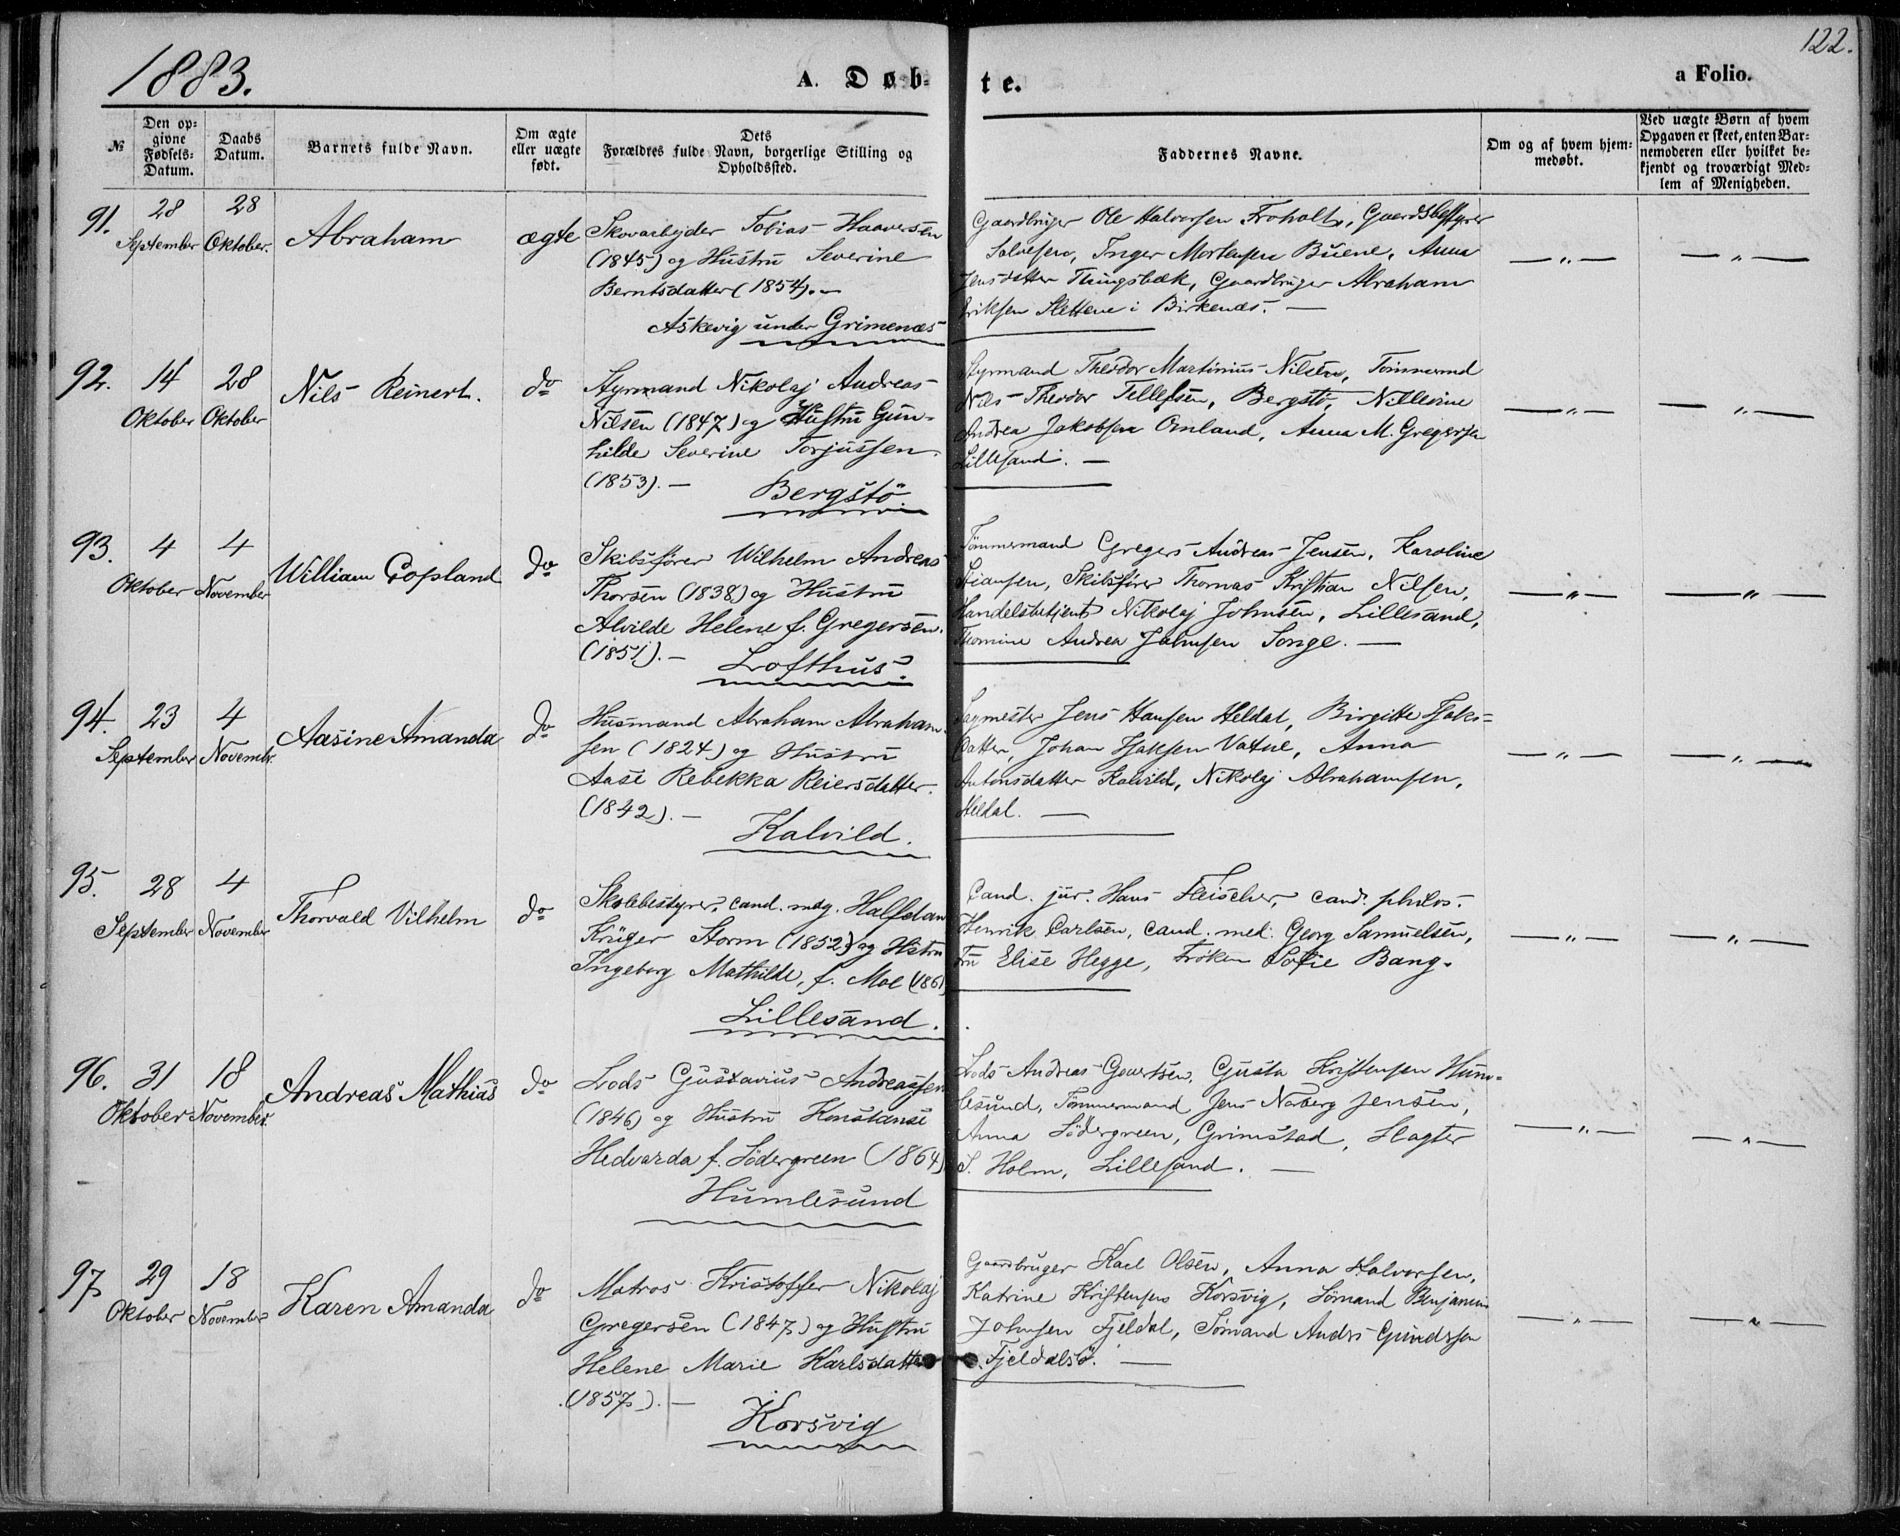 1883.
A. Døb-
te.
a Folio.
122.
№
Den op-
givne
Fødsels-
Datum.
Daabs
Datum.
Barnets fulde Navn.
Om ægte
eller uægte
født.
Dets
Forældres fulde Navn, borgerlige Stilling og
Opholdssted.
Faddernes Navne.
Om og af hvem hjem-
medøbt.
Ved uægte Børn af hvem
Opgaven er skeet, enten Bar-
nemoderen eller hvilket be-
kjendt og troværdigt Med-
lem af Menigheden.
91.
28
September
28
Oktober.
Abraham
ægte
Skovarbejder Tobias Haaversen
(1845) og Hustru Severine
Berntsdatter (1854).—
Askevig under Grimenæs
Gaardbruger Ole Halvorsen Froholt, Gaardsbestyrer
Salvesen, Inger Mortensen Buene, Anna
Jensdatter Tingsbæk, Gaardbruger Abraham
Eriksen Slettene i Birkenæs. —
— „ —
— „ —
92.
14
Oktober
28
Oktober
Nils Reinert.
do
Styrmand Nikolaj Andreas
Nilsen (1847) og Hustru Gun-
hilde Severine Torjussen
(1853). —
Bergstö.
Styrmand Theodor Martinius Nilsen, Tömmermd
Nils Theodor Tellefsen, Bergstö, Nillevine
Andrea Jakobsen Omland, Anna M. Gregersen
Lillesand. —
— „ —
— „ —
93.
4
Oktober
4
November
William Copland
do
Skibsfører Wilhelm Andreas
Thorsen (1838) og Hustru
Alvilde Helene f. Gregersen.
(1851). —
Lofthus.
Tömmermand Gregers Andreas Jensen, Karoline
Stiansen, Skibsfører Thomas Kristian Nilsen,
Handelsbetjent Nikolaj Johnsen, Lillesand,
Thomine Andrea Johnsen Songe. —
— „ —
— „ —
94.
23
September
4
Novembr.
Aasine Amanda
do
Husmand Abraham Abraham-
sen (1824) og Hustru
Aase Rebekka Reiersdatter.
(1842). —
Kalvild.
Sagmester Jens Hansen Heldal, Birgitte Isaks-
datter, Johan Isaksen Vatne, Anna
Antonsdatter Kalvild, Nikolaj Abrahamsen,
Heldal. —
— „ —
— „ —
95.
28
September
4
November
Thorvald Vilhelm
do
Skolebestyrer, cand. mag. Halfdan
Krüger Storm (1852) og Hstru
Ingeborg Mathilde, f. Moe (1861)
Lillesand.
Cand. jur. Hans Fleischer, cand. philos.
Henrik Carlsen, cand. med. Georg Samuelsen,
Fru Elise Hegge, Frøken Sofie Bang.
— „ —
— „ —
96.
31
Oktober
18
November.
Andreas Mathias
do
Lods Gustavius Andreassen
(1846) og Hustru Konstanse
Hedvarda f. Södergreen (1864)
Humlesund
Lods Andreas Govertsen, Gusta Kristensen Hum-
lesund, Tömmermand Jens Naberg Jensen,
Anna Södergreen, Grimstad, Slagter
S. Holm, Lillesand. —
— „ —
— „ —
97
29
Oktober
18
November
Karen Amanda
do
Matros Kristoffer Nikolaj
Gregersen (1847) og Hustru
Helene Marie Karlsdatter
(1857). —
Korsvig
Gaardbruger Karl Olsen, Anna Halvorsen,
Katrine Kristensen Korsvig, Sömand Benjamin
Johnsen Fjeldal, Sömand Anders Gundersen
Fjeldalsö. —
— „ —
— „ —